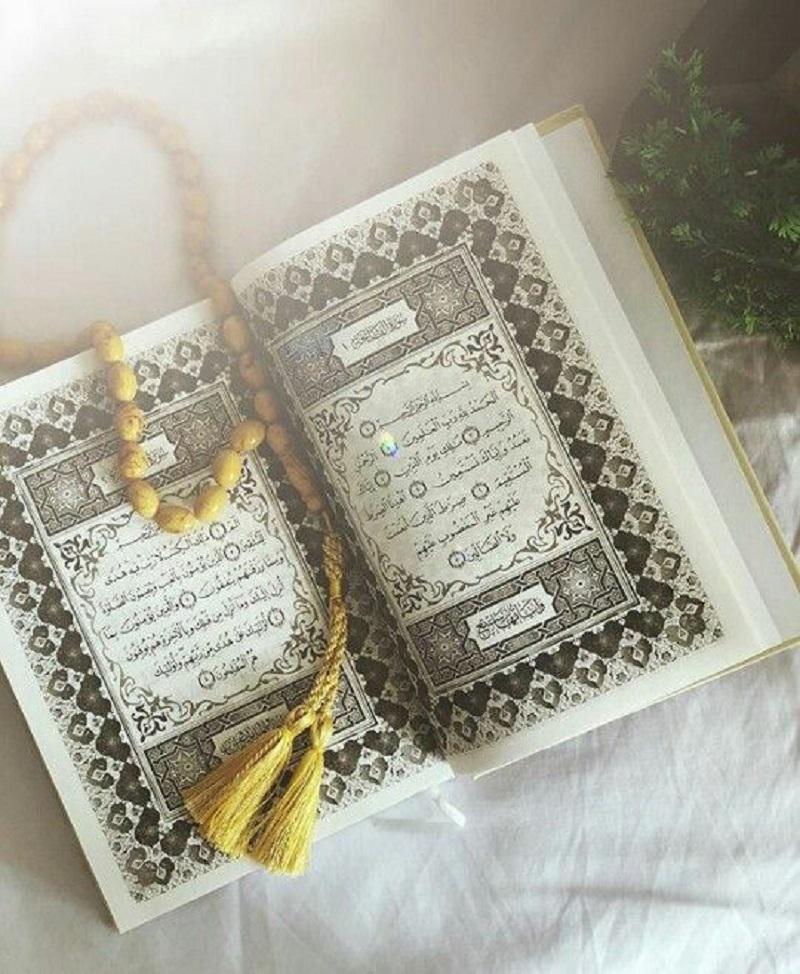 سورة الفاتحة
بسم الله الرحمن الرحيم
الحمد لله رب العلمين الرحمن
الرحيم ملك يوم الدين إياك
نعبد وإياك نستعين اهدنا الصرط
المستقيم صرط الذين أنعمت
عليهم غير المغضوب عليهم
ولا الضالين
الم ذلك الكتب لا ريب فيه هدى
للمتقين الذين يؤمنون بالغيب ويقيمون الصلوة
ومما رزقنهم ينفقون والذين يؤمنون بما
أنزل إليك وما أنزل من قبلك وبالآخرة هم يوقنون
أولئك على هدى من ربهم وأولئك
هم المفلحون